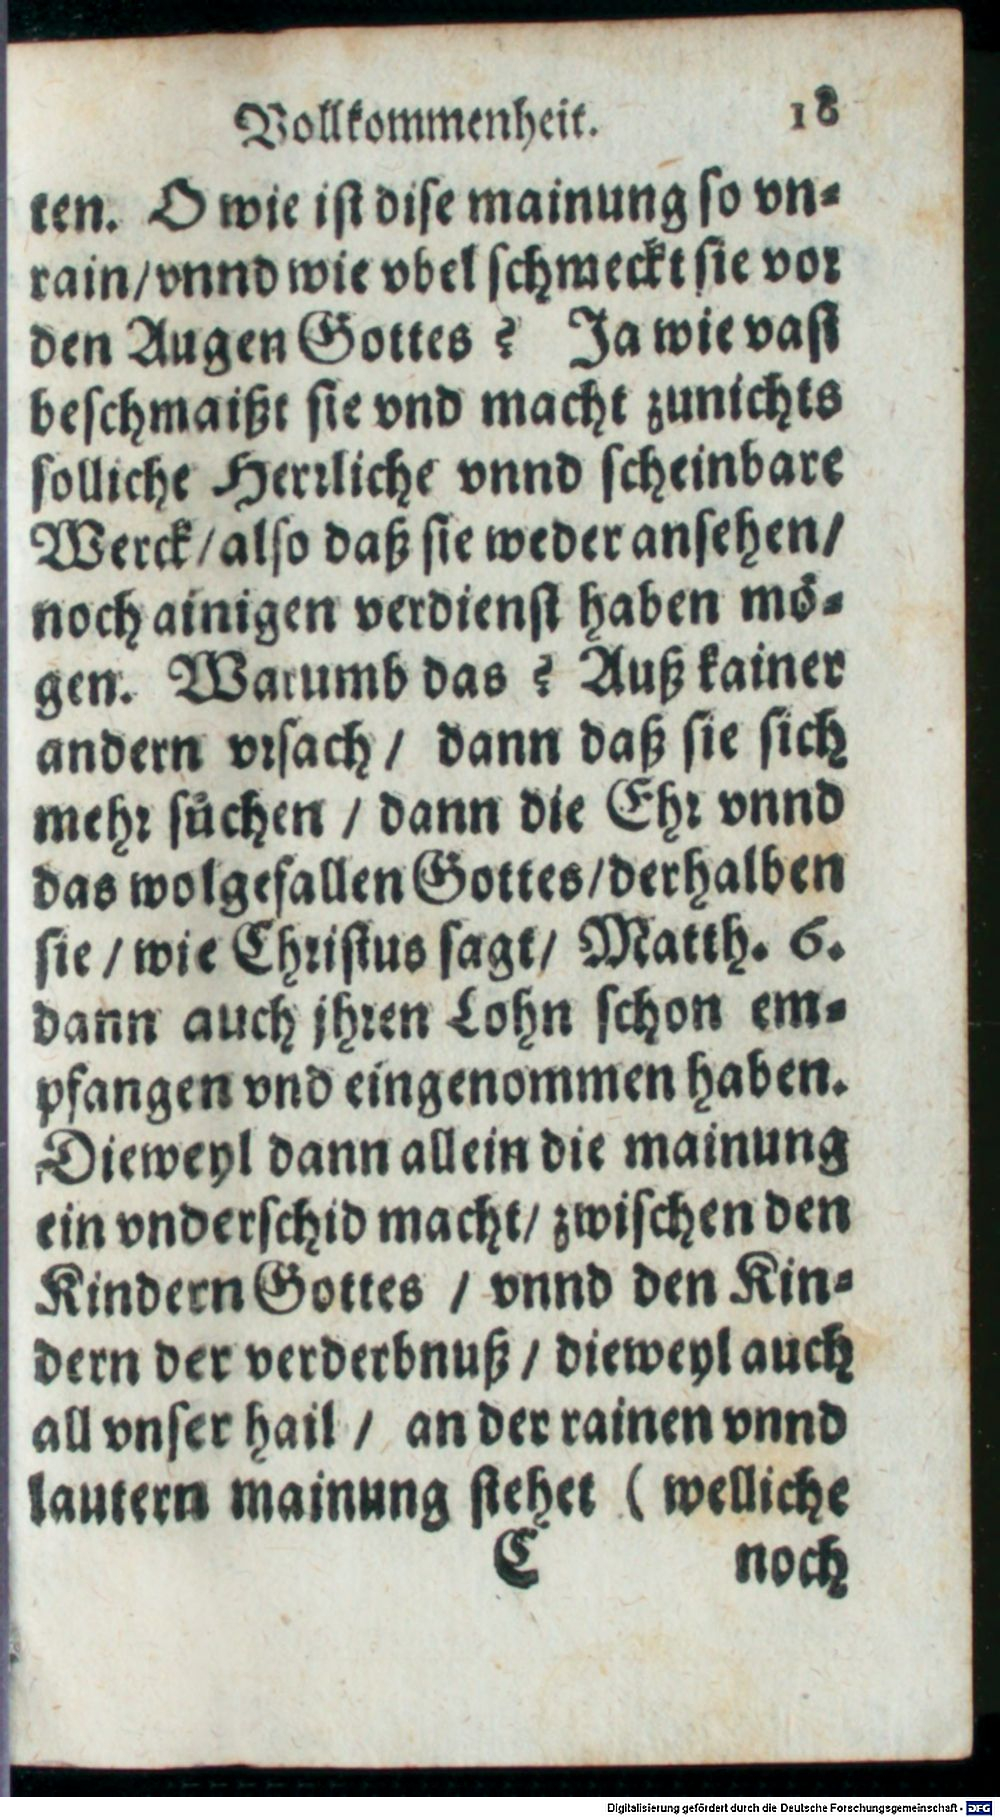 Vollkommenheit. 18
ten. O wie ist dise mainung so vn-
rain/vnnd wie vbel schmeckt sie vor
den Augen Gottes ? Ja wie vast
beschmaißt sie vnd macht zunichts
solliche Herrliche vnnd scheinbare
Werck/also daß sie weder ansehen/
noch ainigen verdienst haben mö-
gen. Warumb das ? Auß kainer
andern vrsach/ dann daß sie sich
mehr sůchen / dann die Ehr vnnd
das wolgefallen Gottes/derhalben
sie / wie Christus sagt/ Matth. 6.
dann auch jhren Lohn schon em-
pfangen vnd eingenommen haben.
Dieweyl dann allein die mainung
ein vnderschid macht/ zwischen den
Kindern Gottes / vnnd den Kin-
dern der verderbnuß / dieweyl auch
all vnser hail / an der rainen vnnd
lautern mainung stehet ( welliche
C noch
Digitalisierung gefördert durch die Deutsche Forschungsgemeinschaft - DFG